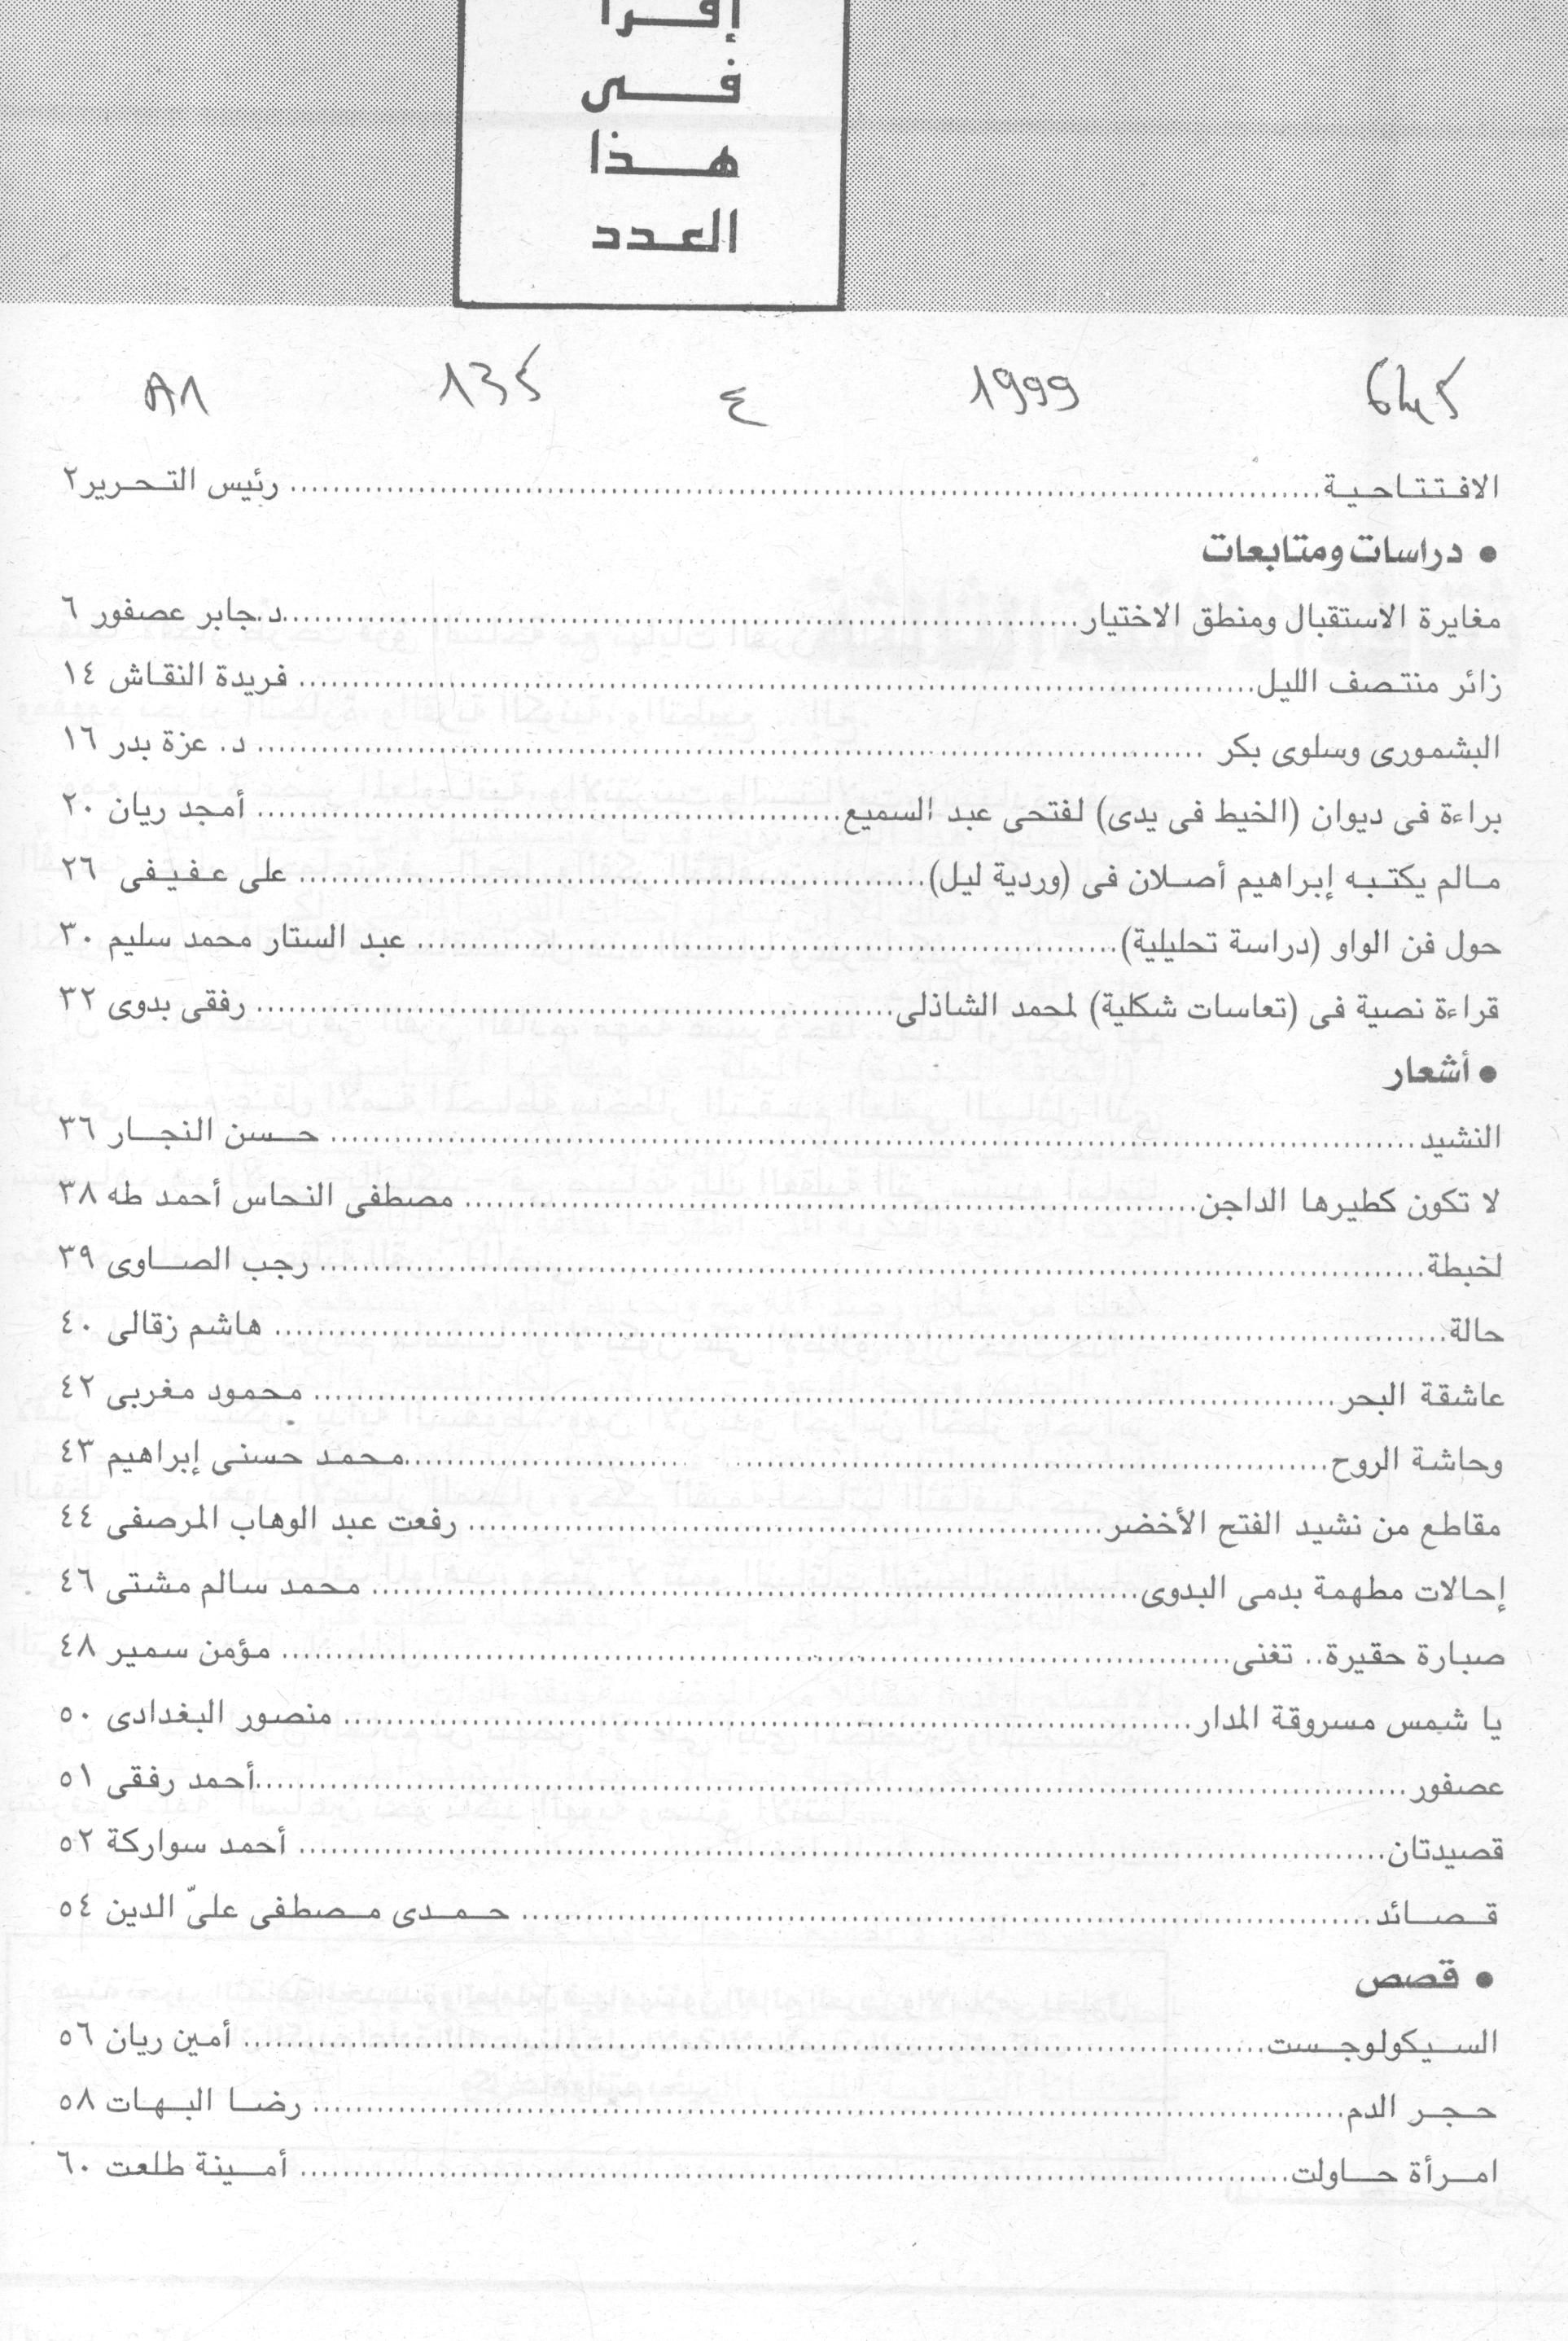 إقرأ
فى
هذا
العدد
645 1999 ٤ 135 A1
الافتتاحية........ رئيس التحرير٢
● دراسات ومتابعات
مغايرة الاستقبال ومنطق الاختيار........د.جابر عصفور ٦
زائر منتصف الليل........ فريدة النقاش ١٤
البشمورى وسلوى بكر ........ د. عزة بدر ١٦
براءة فى ديوان (الخيط فى يدى) لفتحى عبد السميع........ أمجد ريان ٢٠
مالم يكتبه إبراهيم أصلان فى (وردية ليل)........ على عفيفى ٢٦
حول فن الواو (دراسة تحليلية)........ عبد الستار محمد سليم ٣٠
قراءة نصية فى (تعاسات شكلية) لمحمد الشاذلى........ رفقى بدوى ٣٢
● أشعار
النشيد........ حسن النجار ٣٦
لا تكون كطيرها الداجن........ مصطفى النحاس أحمد طه ٣٨
لخبطة........ رجب الصاوى ٣٩
حالة........ هاشم زقالى ٤٠
عاشقة البحر........ محمود مغربى ٤٢
وحاشة الروح........محمد حسنى إبراهيم ٤٣
مقاطع من نشيد الفتح الأخضر........ رفعت عبد الوهاب المرصفى ٤٤
إحالات مطهمة بدمى البدوى........ محمد سالم مشتى ٤٦
صبارة حقيرة.. تغنى........ مؤمن سمير ٤٨
يا شمس مسروقة المدار........ منصور البغدادى ٥٠
عصفور........أحمد رفقى ٥١
قصيدتان........ أحمد سواركة ٥٢
قصائد........ حمدى مصطفى علىّ الدين ٥٤
● قصص
السيكولوجست........ أمين ريان ٥٦
حجر الدم........ رضا البهات ٥٨
امرأة حاولت........ أمينة طلعت ٦٠